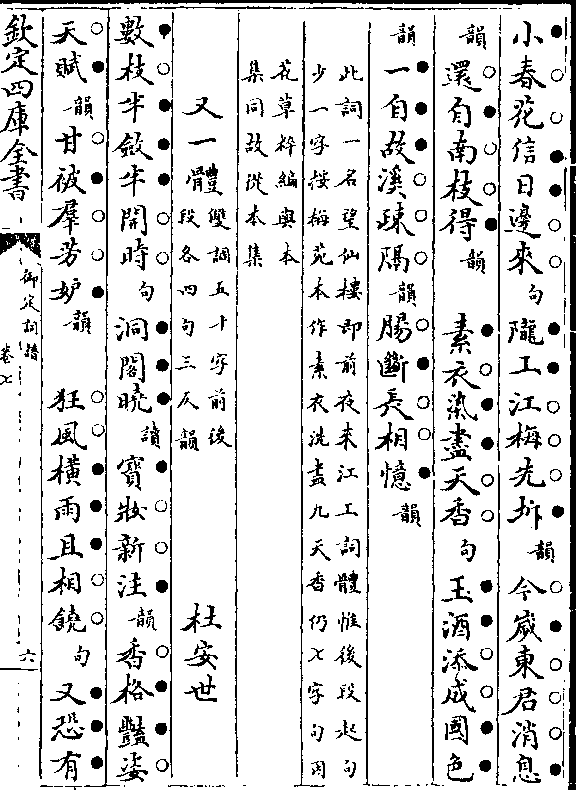 小春花信日邊來句隴上江梅先坼韻今歲東君消息
韻還自南枝得韻　素衣染盡天香句玉酒添成國色
韻一自故溪疎隔韻腸斷長相憶韻
此詞一名望仙樓即前夜來江上詞體惟後段起句
少一字按梅苑本作素衣洗盡九天香仍七字句因
花草粹編與本
集同故從本集
又一體雙調五十字前後
段各四句三仄韻　杜安世
數枝半斂半開時句洞閣曉讀寳妝新注韻香格豔姿
天賦韻甘被羣芳妒韻　狂風橫雨且相饒句又恐有
欽定四庫全書
御定詞譜
卷七
六